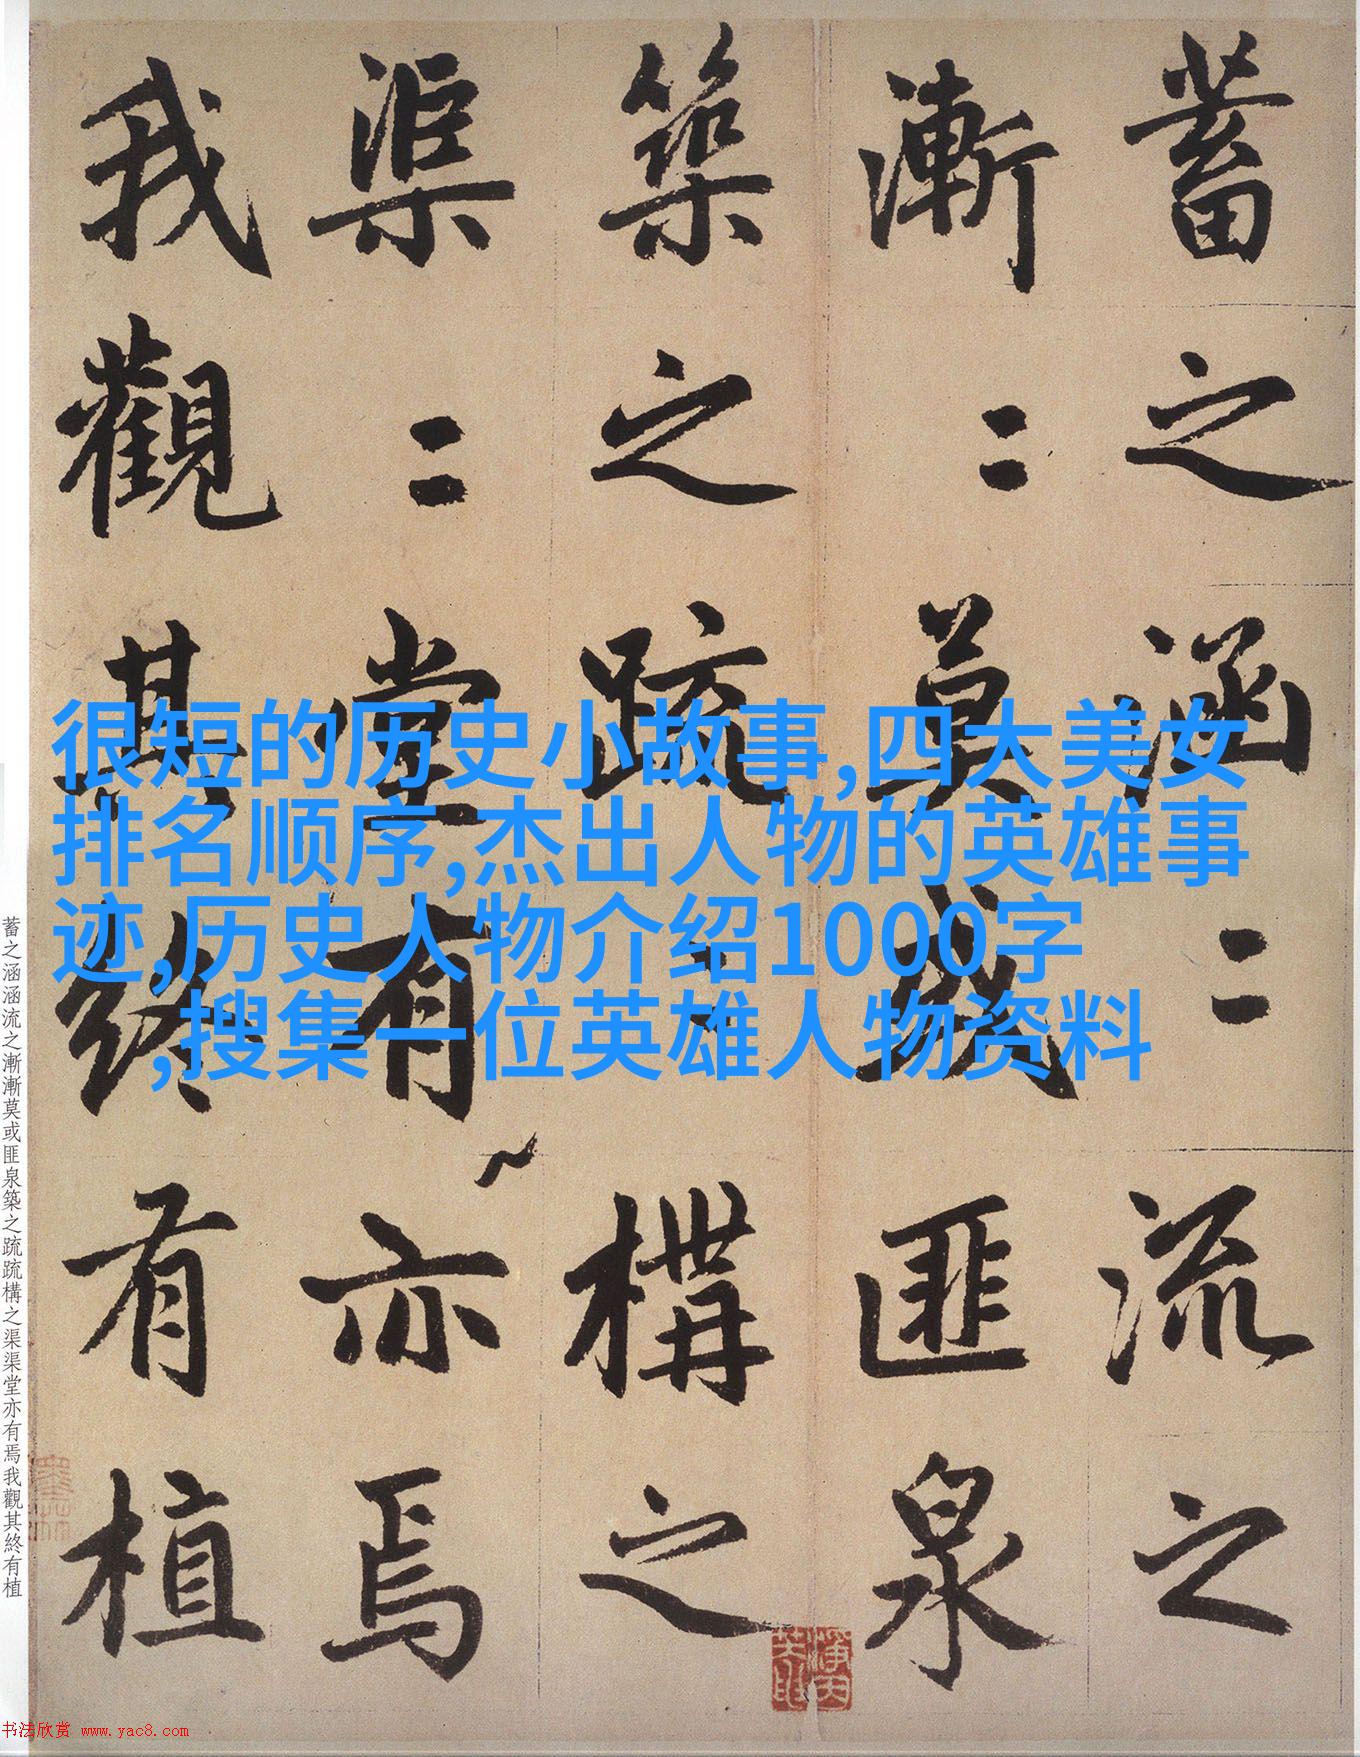 蓄之涵〻流之
漸〻莫或匪泉
築之疏〻構之
渠〻堂有亦焉
我觀其終有植
很短的历史小故事,四大美女
排名顺序,杰出人物的英雄事
迹,历史人物介绍1000字
,搜集一位英雄人物资料
蓄之涵涵流之漸漸莫或匪泉築之疏疏構之渠渠堂亦有焉我觀其終有植
书法欣赏 www.yac8.com